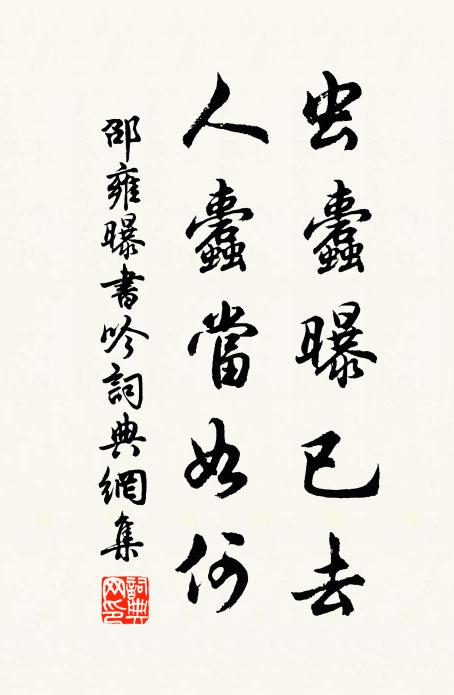 虫蠹曝已去
人蠹當如何
邵雍曝書吟詞典網集
詞典
网印